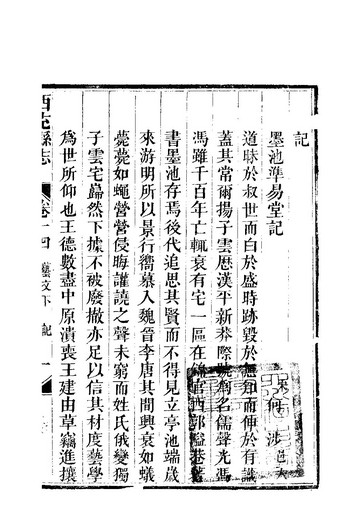 記
墨池準易堂記 何涉 邑人
道昧於叔世而白於盛時跡毀於無知而伸於有識
蓋其常爾揚子雲歷漢平新莽際名儒聲光馮
馮雖千百年亡輒衰有宅一區在錦官西郭隘巷著
書墨池存焉後代追思其賢而不得見立亭池端歲
來游明所以景行嚮慕入魏晉李唐其間興衰如蟻
薨薨如蠅營營侵晦讙譊之聲未窮而姓氏俄變獨
子雲宅巋然下據不被廢撤亦足以信其材度藝學
為世所仰也王德數盡中原潰喪王建由草竊進攘
西充縣志 卷十四 藝文下 記 一